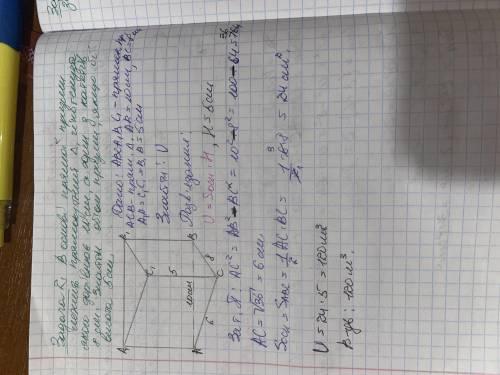 Задача 2. В основі прямої призми
лежить прямокутний Δ, гіпотенуза
якого дорівнює 10см а один з катетів
8 см. Знайти об'єм призми, якщо її
висота 5 см.
Дано: ABCA₁B₁C₁ - пряма пр.
ACB - прям. Δ. AB = 10 см, BC = 8
AA₁ = C₁C = B₁B = 5 см
Знайти: V
Розв'язання:
V = Sосн · H, H = 5 см
A₁
B₁
C₁
5
10см
8
6
A
B
C
За т. П: AC² = AB² - BC² = 10² - 8² = 100 - 64 = 36
AC = √36 = 6 см.
Sосн = SABC = 1/2 AC · BC = 1/2 · 6 · 8 = 24 см².
V = 24 · 5 = 120 м³
В-дь: 120 м³.